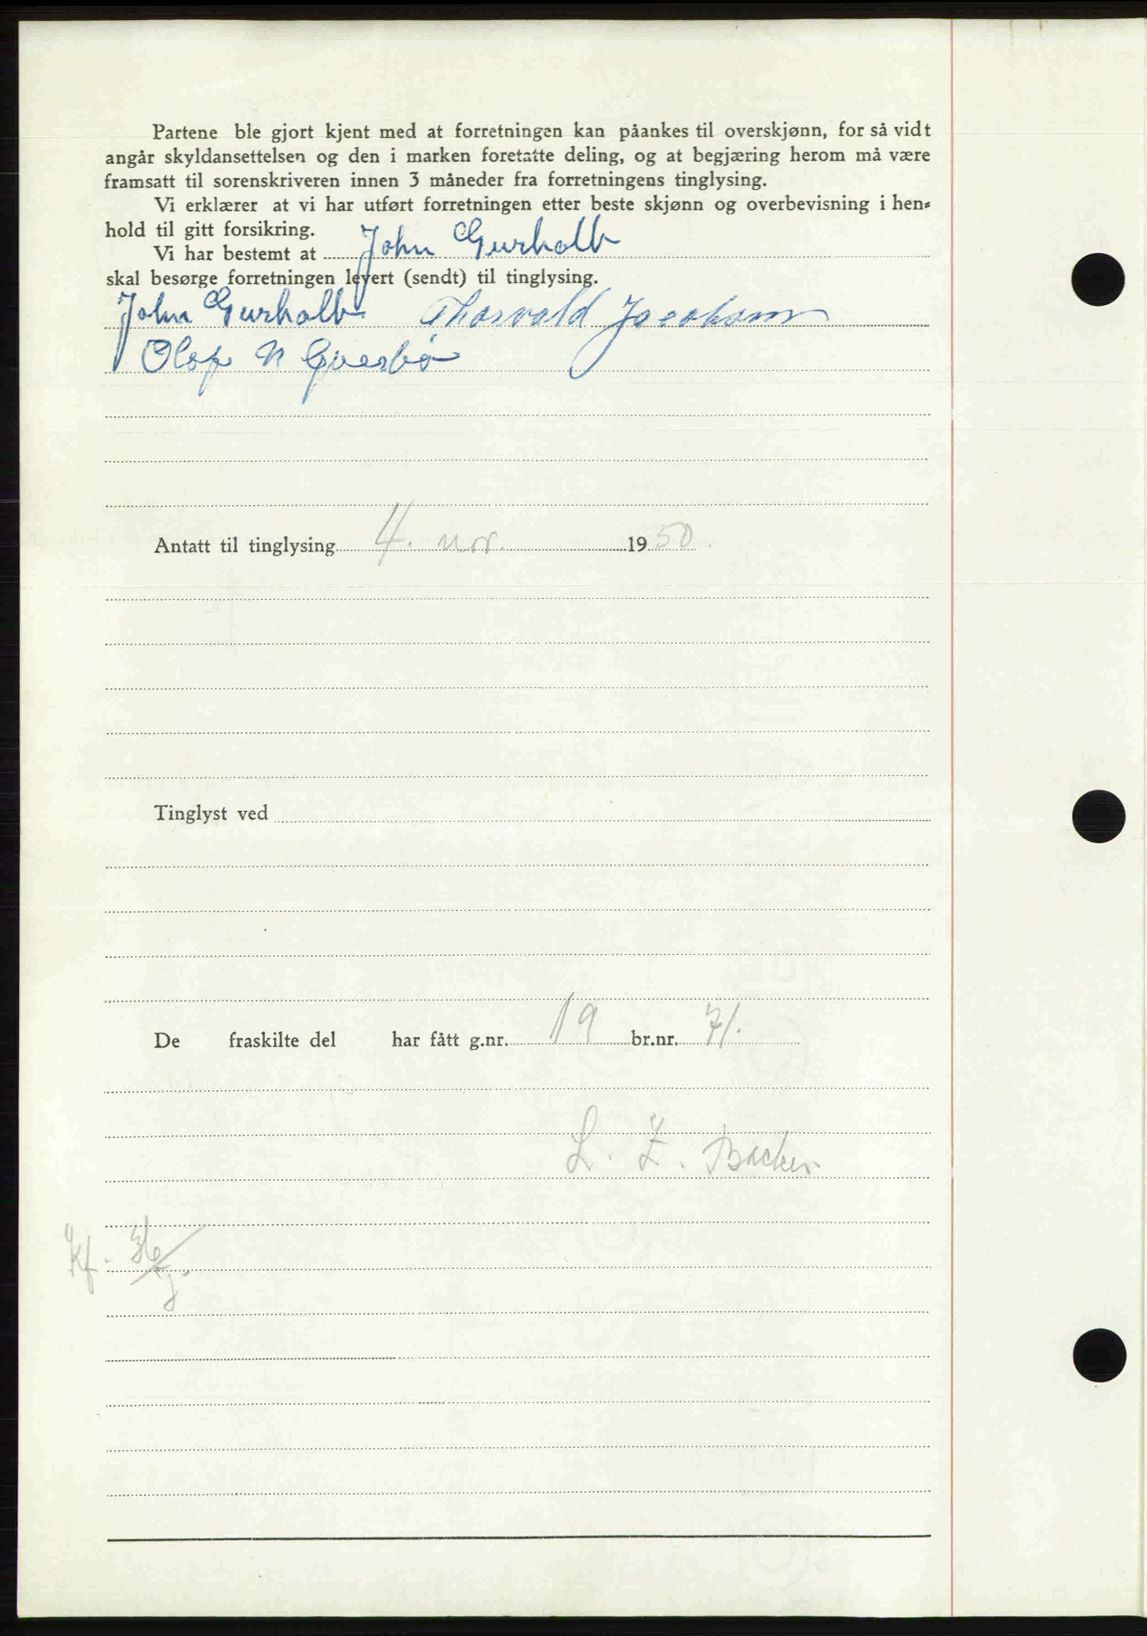 Partene ble gjort kjent med at forretningen kan påankes til overskjønn, for så vidt
angår skyldansettelsen og den i marken foretatte deling, og at begjæring herom må være
framsatt til sorenskriveren innen 3 måneder fra forretningens tinglysing.
Vi erklærer at vi har utført forretningen etter beste skjønn og overbevisning i hen-
hold til gitt forsikring.
Vi har bestemt at John Gurholt
skal besørge forretningen levert (sendt) til tinglysing.
John Gurholt Thorvald Jacobsen
Olaf N
Antatt til tinglysing 4. nov. 1950.
Tinglyst ved
De fraskilte del har fått g.nr. 19 br.nr. 71.
L. Z. Backer
Kf.